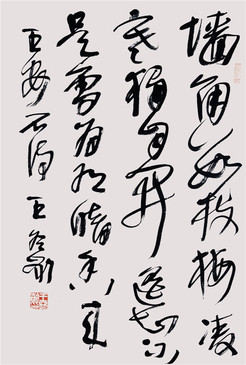 墙角数枝梅凌
寒独自开遥知不
是雪为有暗香来
王安石诗 王